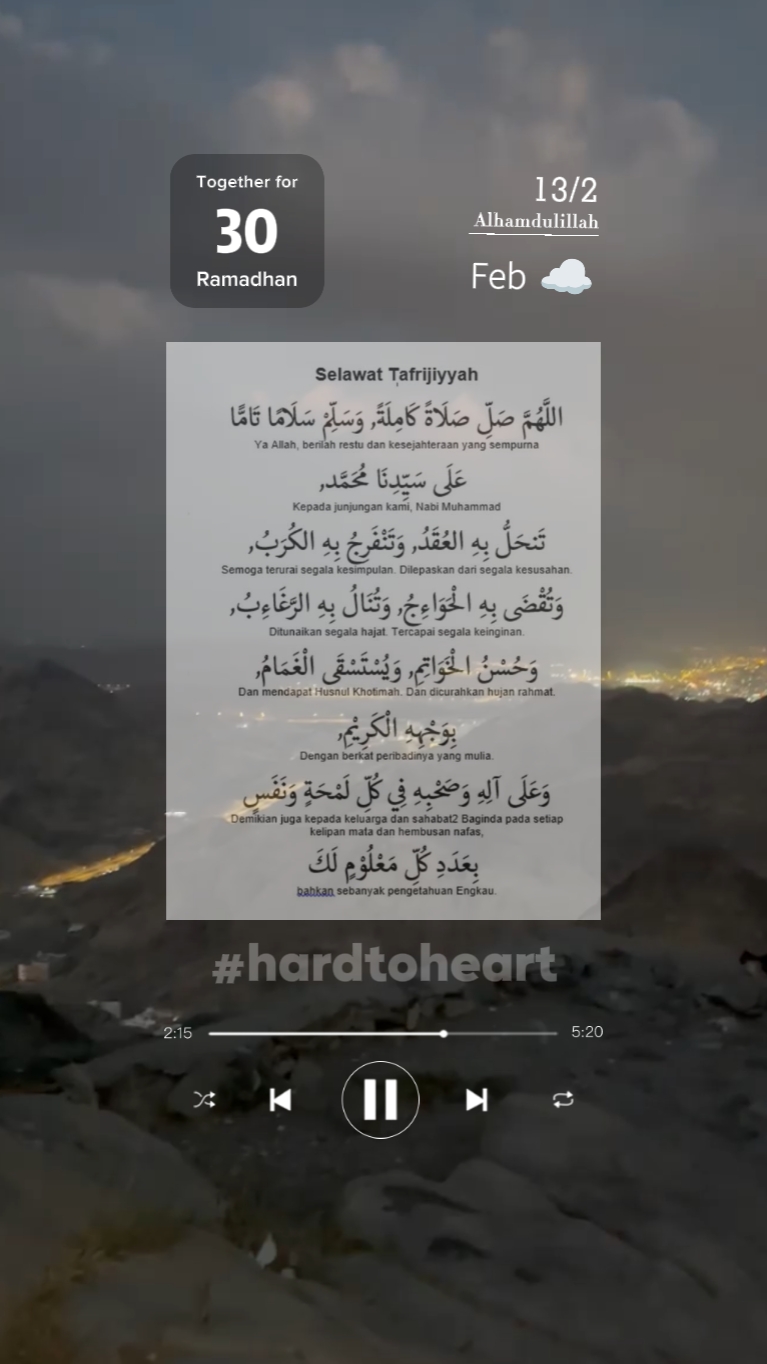 Together for
30
Ramadhan
13/2
Alhamdulillah
Feb
Selawat Tafrijiyyah
اللَّهُمَّ صَلِّ صَلَاةً كَامِلَةً, وَسَلِّمْ سَلَامًا تَامًّا
Ya Allah, berilah restu dan kesejahteraan yang sempurna
عَلَى سَيِّدِنَا مُحَمَّد,
Kepada junjungan kami, Nabi Muhammad
تَنحَلُّ بِهِ العُقَدُ, وَتَنْفَرِجُ بِهِ الكُرَبُ,
Semoga terurai segala kesimpulan. Dilepaskan dari segala kesusahan.
وَتُقْضَى بِهِ الْحَوَاءِجُ, وَتُنَالُ بِهِ الرَّغَاءِبُ,
Ditunaikan segala hajat. Tercapai segala keinginan.
وَحُسْنُ الْخَوَاتِمِ, وَيُسْتَسْقَى الْغَمَامُ,
Dan mendapat Husnul Khotimah. Dan dicurahkan hujan rahmat.
بِوَجْهِهِ الْكَرِيْمِ,
Dengan berkat peribadinya yang mulia.
وَعَلَى آلِهِ وَصَحْبِهِ فِي كُلِّ لَمْحَةٍ وَنَفَسٍ
Demikian juga kepada keluarga dan sahabat2 Baginda pada setiap
kelipan mata dan hembusan nafas,
بِعَدَدِ كُلِّ مَعْلُوْمٍ لَكَ
bahkan sebanyak pengetahuan Engkau.
#hardtoheart
2:15
5:20